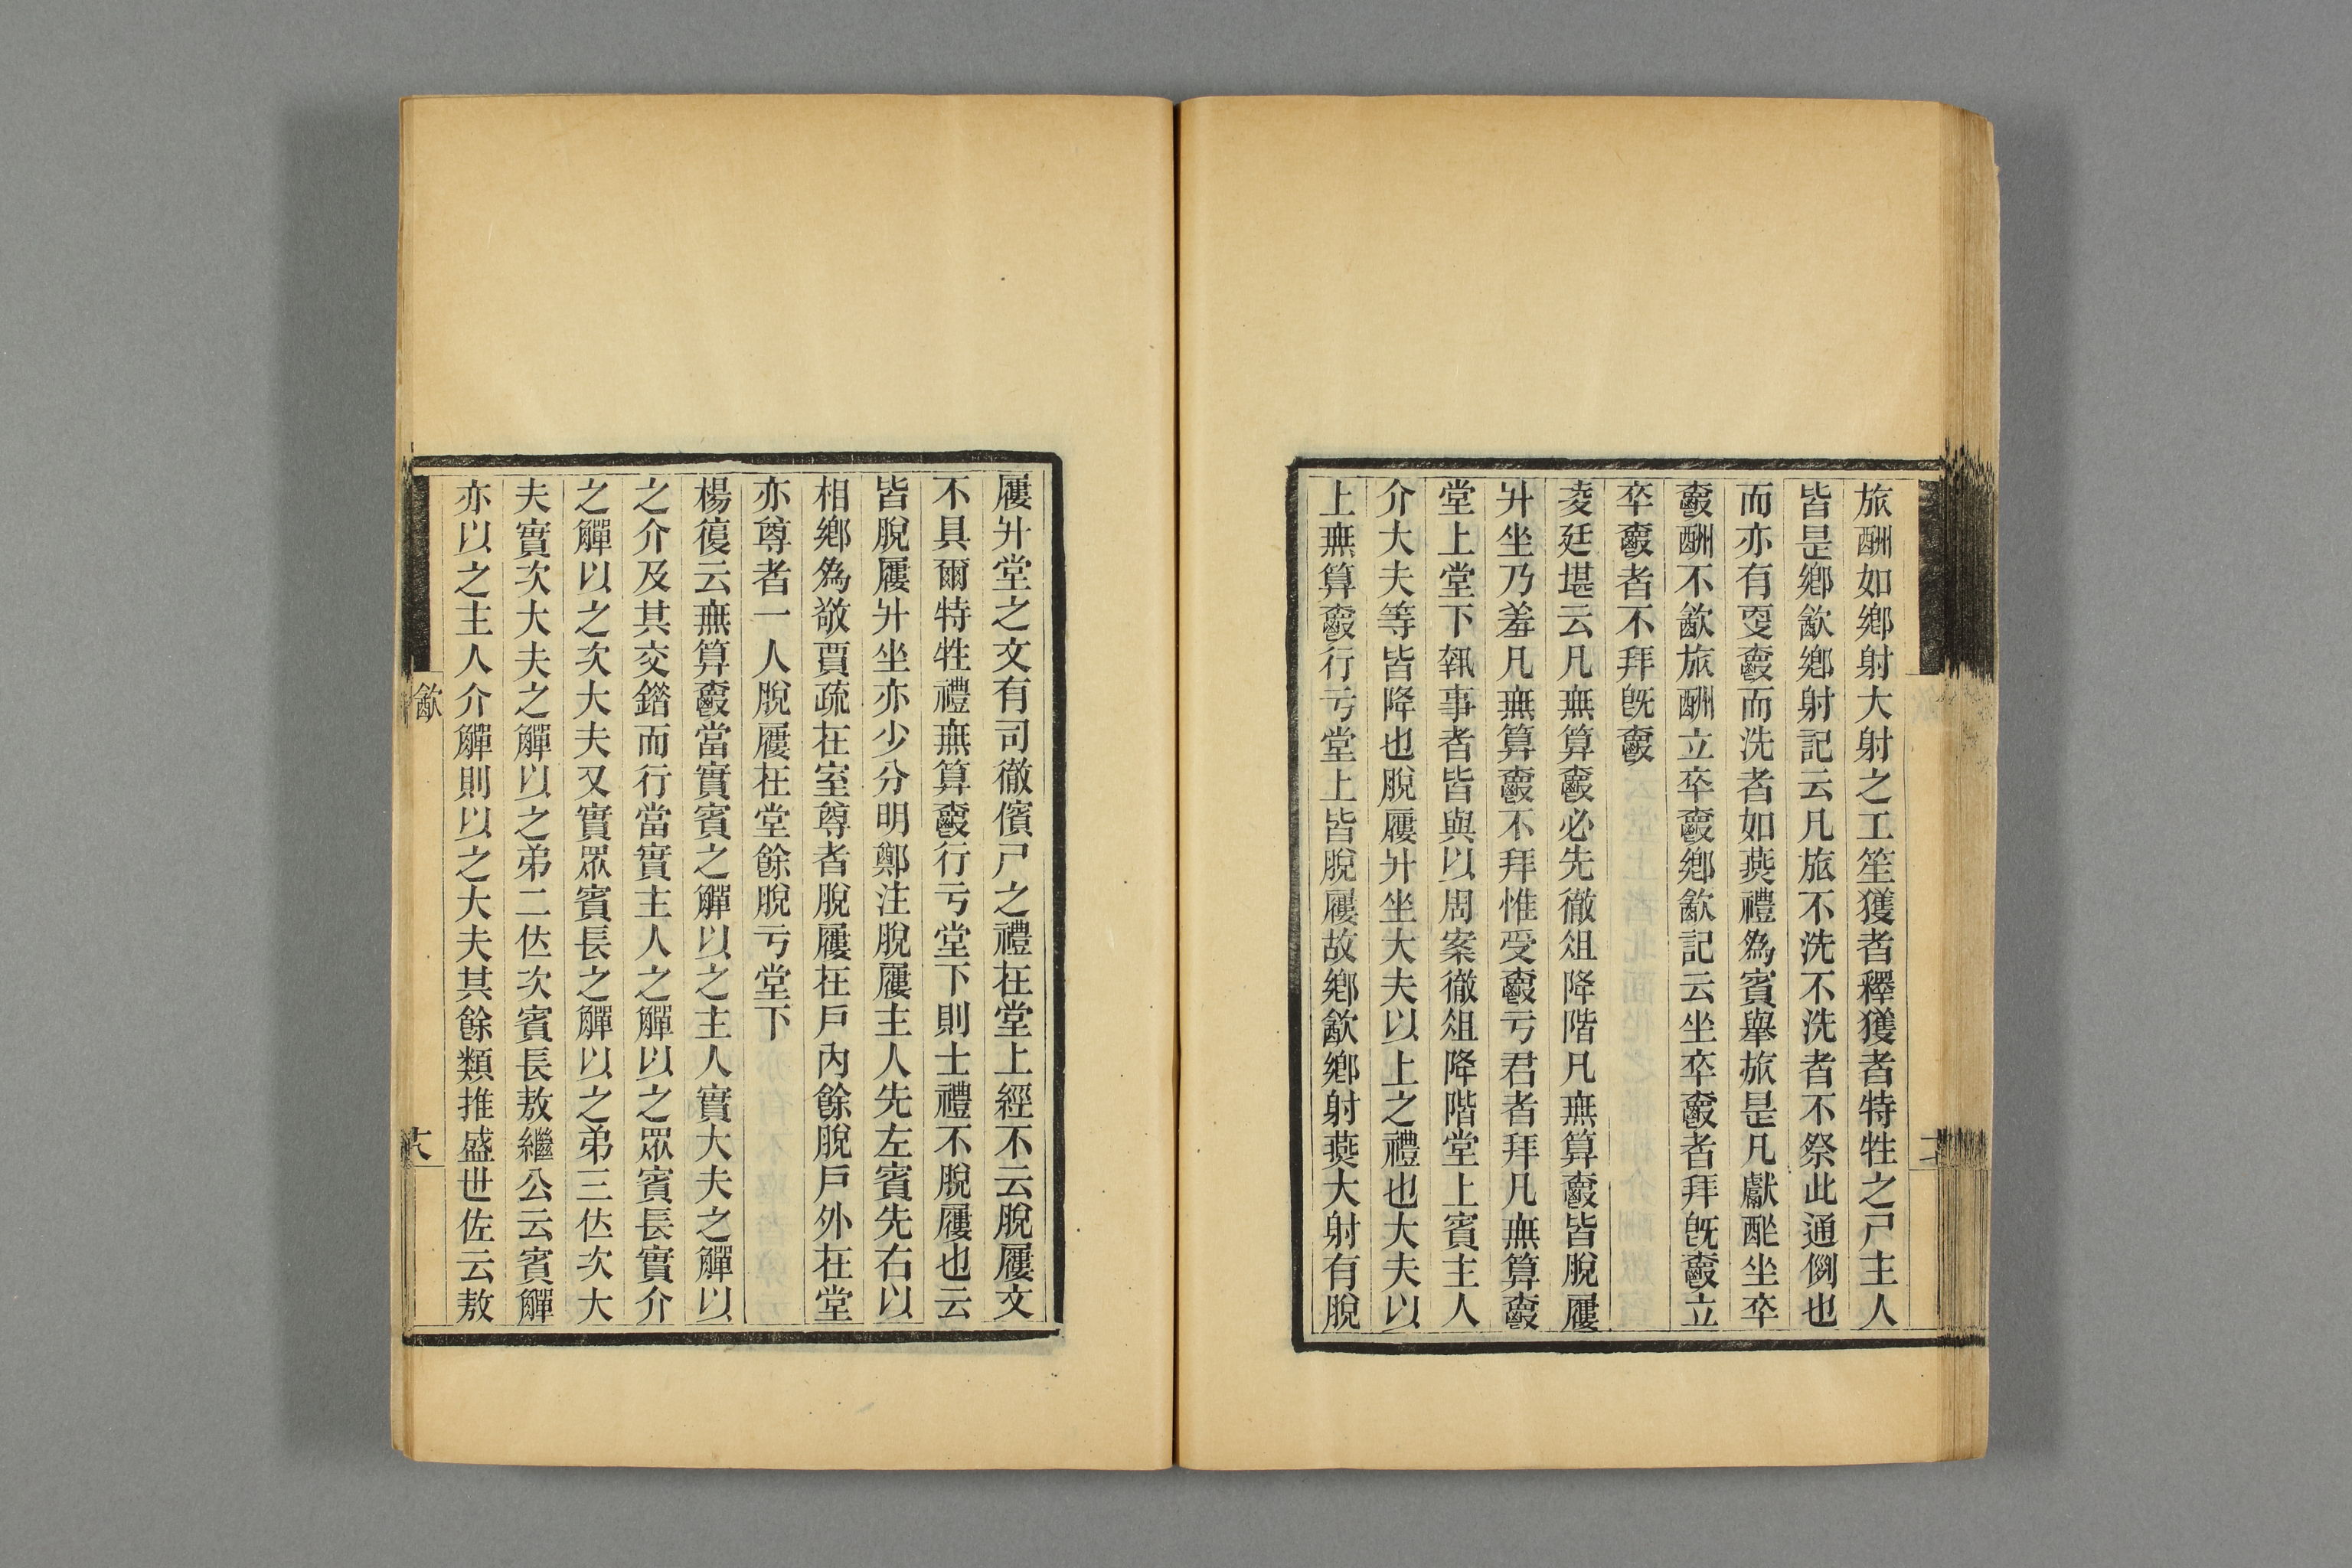 旅酬如鄉射大射之工笙獲者釋獲者特牲之尸主人
皆是鄉歙鄉射記云凡旅不洗不洗者不祭此通例也
而亦有㪅爵而洗者如燕禮為賓舉旅是凡獻酢坐卒
爵酬不歙旅酬立卒爵鄉歙記云坐卒爵者拜旣爵立
卒爵者不拜旣爵
凌廷堪云凡無算爵必先徹俎降階凡無算爵皆脫屨
升坐乃羞凡無算爵不拜惟受爵亏君者拜凡無算爵
堂上堂下執事者皆與以周案徹俎降階堂上賓主人
介大夫等皆降也脫屨升坐大夫以上之禮也大夫以
上無算爵行亏堂上皆脫屨故鄉歙鄉射燕大射有脫
屨升堂之文有司徹儐尸之禮在堂上經不云脫屨文
不具爾特牲禮無算爵行亏堂下則士禮不脫屨也云
皆脫屨升坐亦少分明鄭注脫屨主人先左賓先右以
相鄉為敬賈疏在室尊者脫屨在戶內餘脫戶外在堂
亦尊者一人脫屨在堂餘脫亏堂下
楊復云無算爵當實賓之觶以之主人實大夫之觶以
之介及其交錯而行當實主人之觶以之眾賓長實介
之觶以之次大夫又實眾賓長之觶以之弟三佐次大
夫實次大夫之觶以之弟二佐次賓長敖繼公云賓觶
亦以之主人介觶則以之大夫其餘類推盛世佐云敖
歙
十八